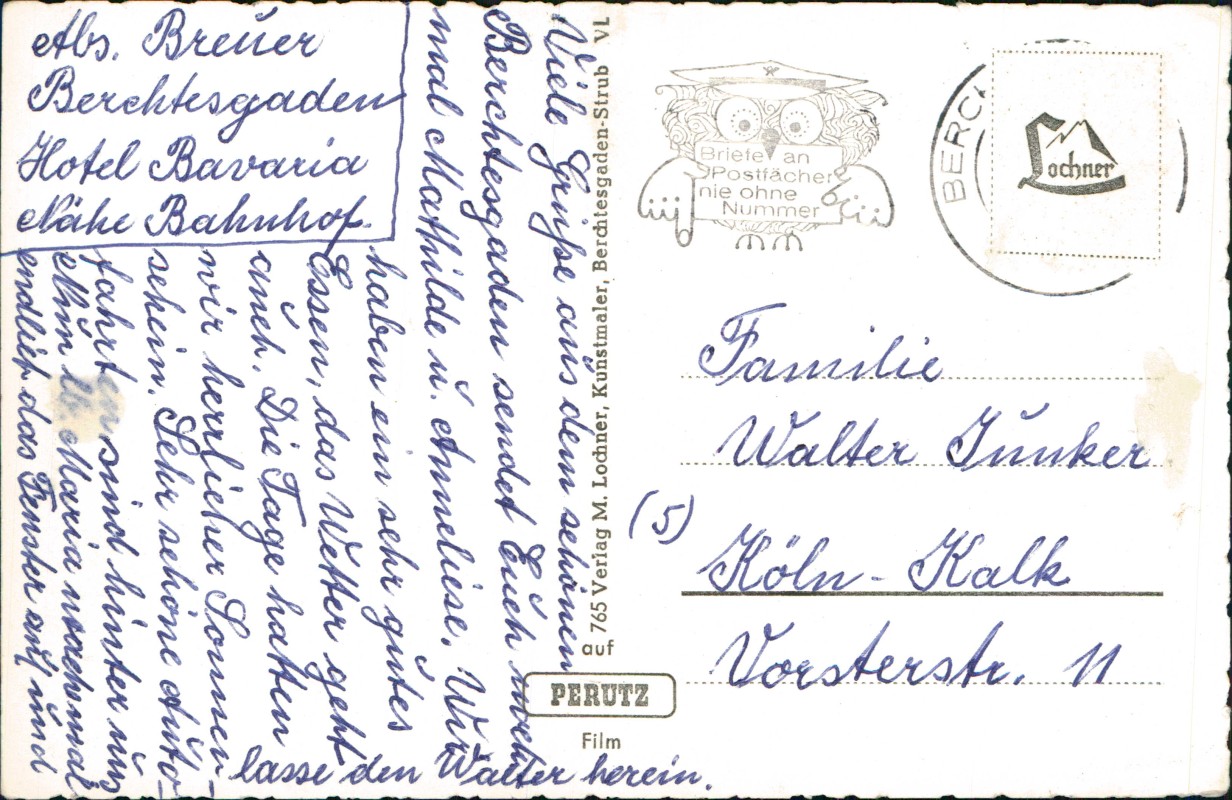 Abs. Breuer
Berchtesgaden
Hotel Bavaria
Nähe Bahnhof.
Viele Grüße aus dem schönen
Berchtesgaden sendet Euch noch
mal Mathilde u. Anneliese. Wir
haben ein sehr gutes
Essen, das Wetter geht
auch. Die Tage hatten
wir herrlicher Sonnen-
schein. Sehr schöne Auto-
fahrten sind hinter uns
Nun lb. Maria mach mal
endlich das Fenster auf und
lasse den Walter herein.
765 Verlag M. Lochner, Kunstmaler, Berchtesgaden-Strub VL
auf
PERUTZ
Film
Briefe an
Postfächer
nie ohne
Nummer
BERCH
Lochner
Familie
Walter Junker
(5)
Köln - Kalk
Vorsterstr. 11